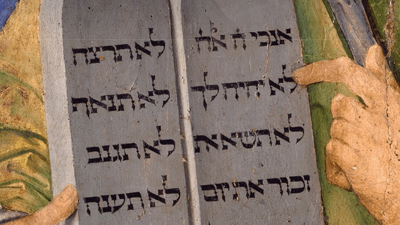 אנכי
לא יהיה לך
לא תשא את
זכור את יום
לא תרצח
לא תנאף
לא תגנב
לא תענה